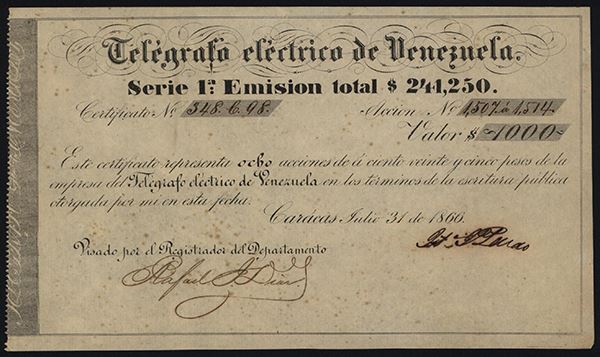 Telégrafo eléctrico de Venezuela.
Serie 1ª Emision total $ 241,250.
Certificato Nº 348. C. 98. Accion Nº 1,507 á 1,514
Valor $ 1000
Este certificato representa ocho acciones de á ciento veinte y cinco pesos de la
empresa del Telégrafo eléctrico de Venezuela en los términos de la escritura pública
otorgada por mi en esta fecha.
Carácas Julio 31 de 1866.
Visado por el Registrador del Departamento
Rafael J. Diaz